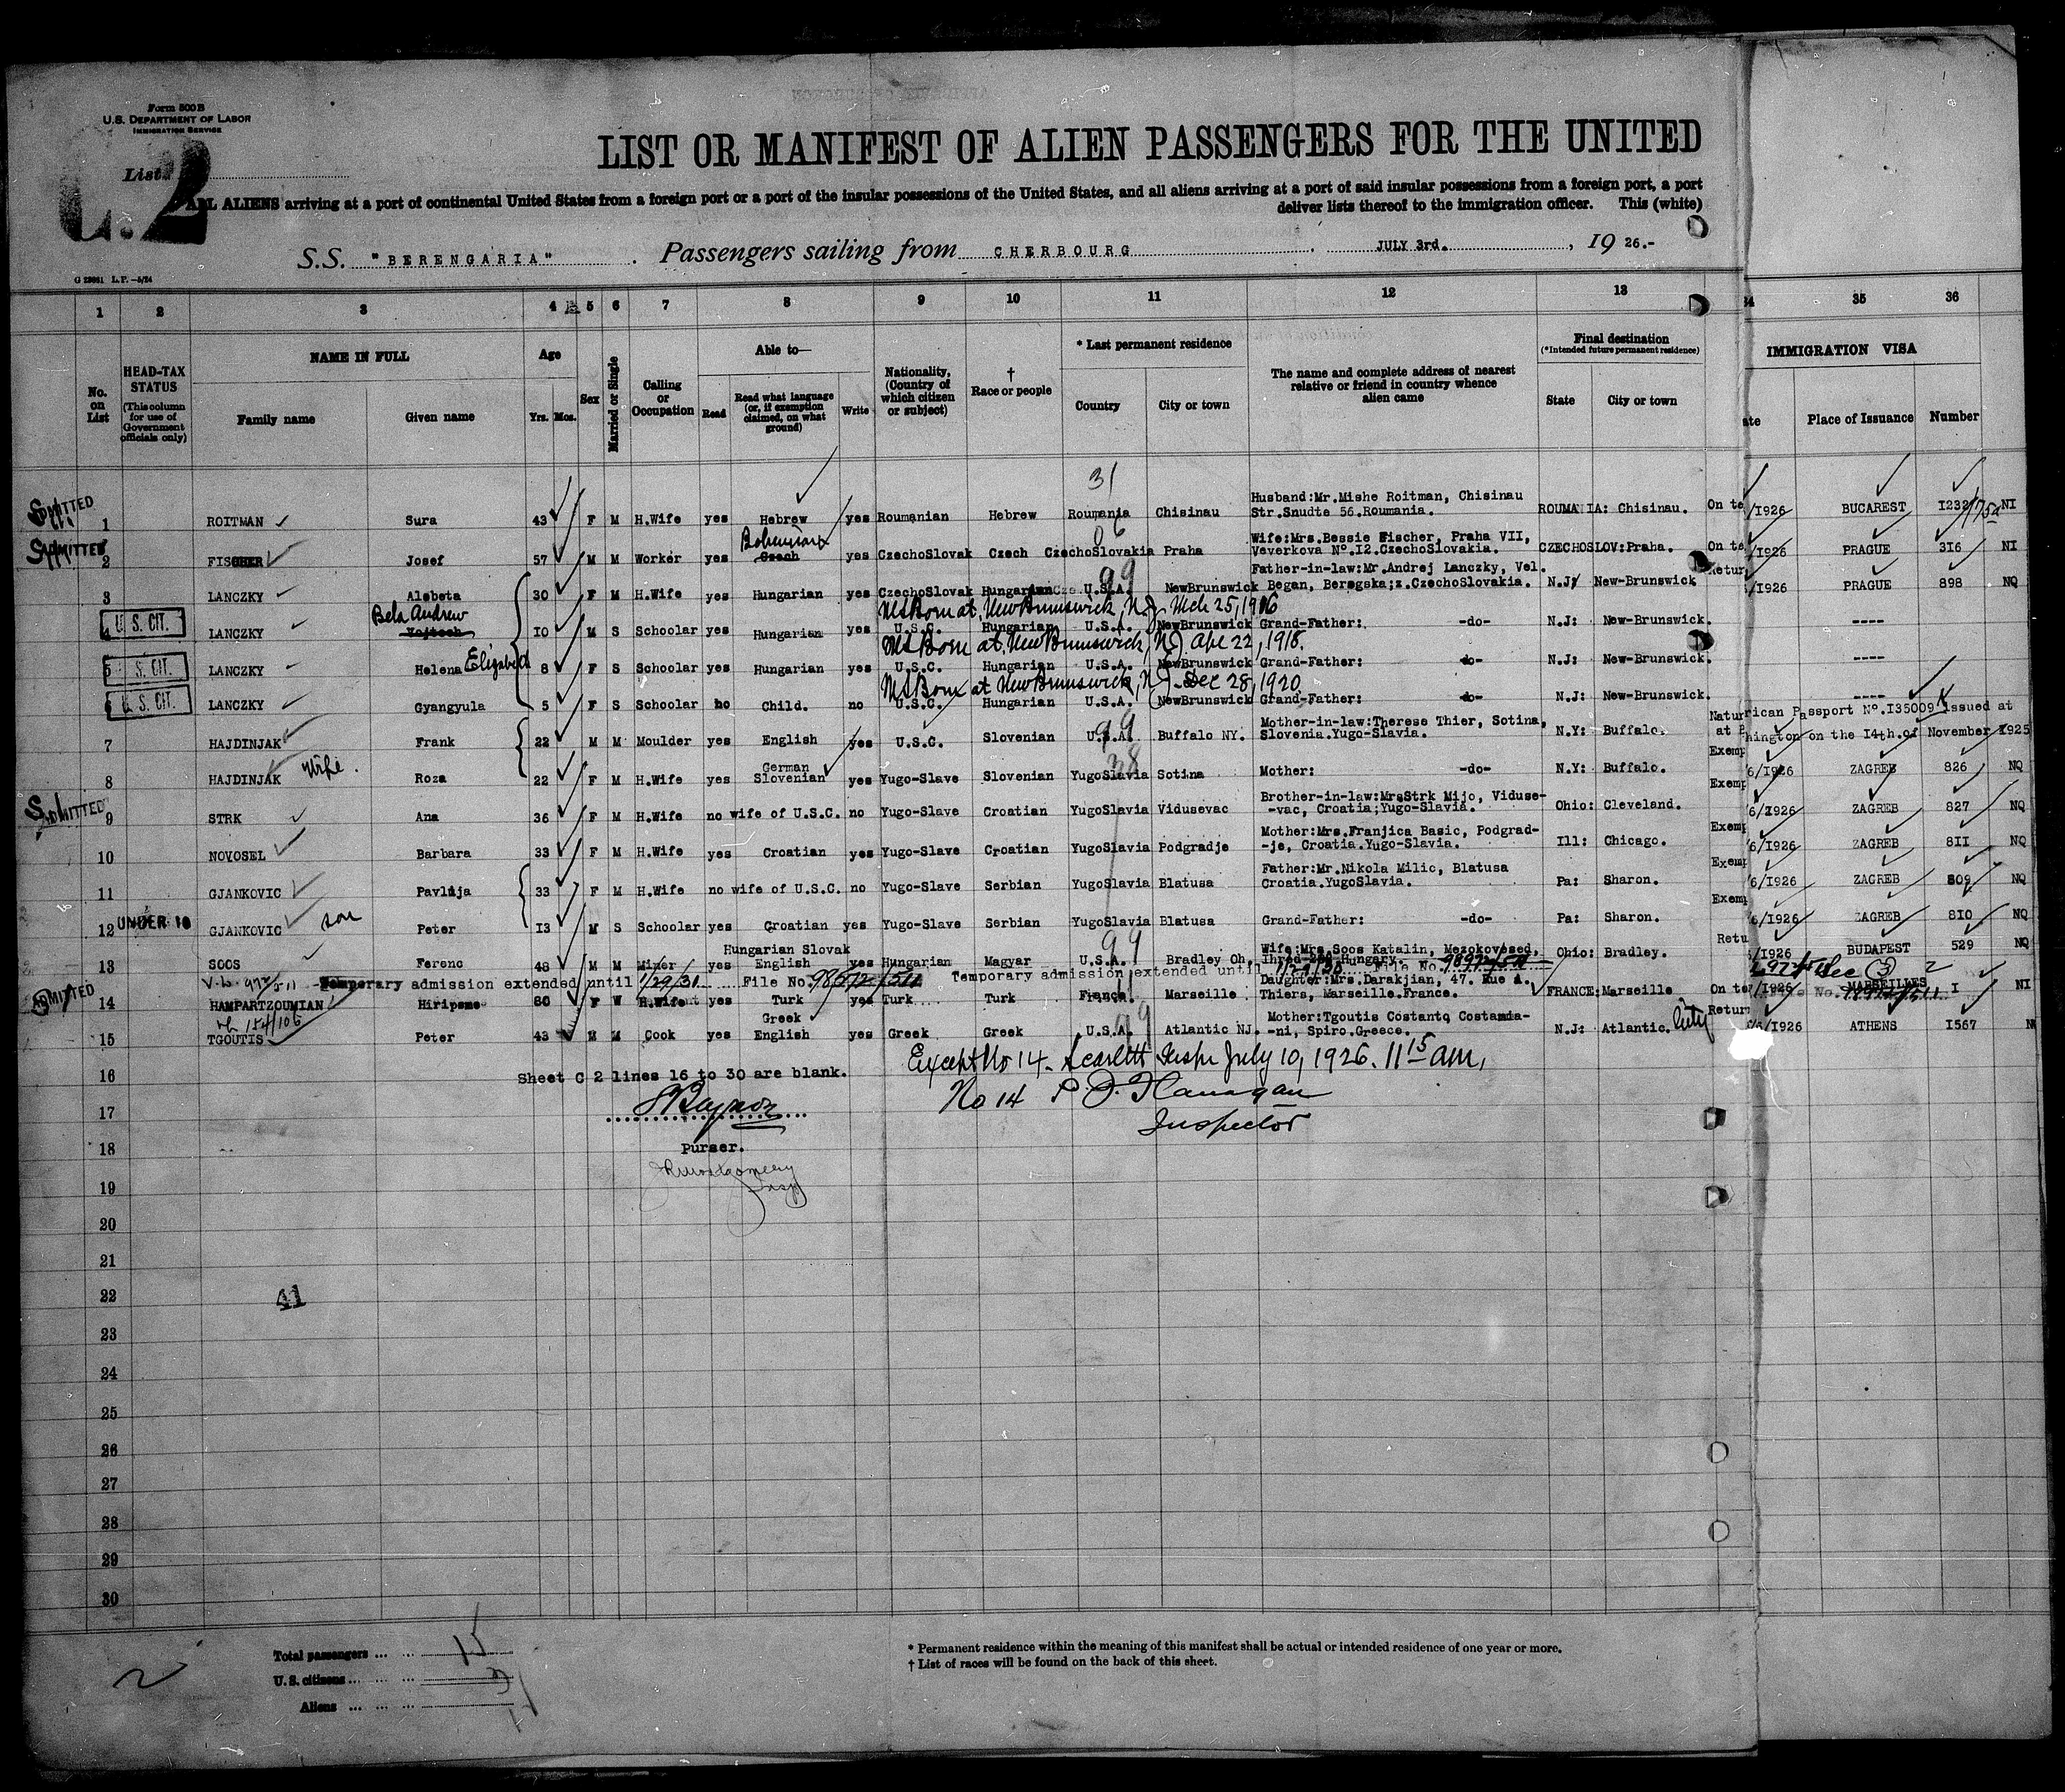 Form 500 B
U.S. DEPARTMENT OF LABOR
IMMIGRATION SERVICE
List
C.2
LIST OR MANIFEST OF ALIEN PASSENGERS FOR THE UNITED
ALL ALIENS arriving at a port of continental United States from a foreign port or a port of the insular possessions of the United States, and all aliens arriving at a port of said insular possessions from a foreign port, a port
deliver lists thereof to the immigration officer. This (white)
S.S. "BERENGARIA" . Passengers sailing from CHERBOURG . JULY 3rd. , 19 26.-
1 2 3 4 5 6 7 8 9 10 11 12 13 34 35 36
No. on List
HEAD-TAX STATUS (This column for use of Government officials only)
NAME IN FULL Family name Given name
Age Yrs. Mos.
Sex
Married or Single
Calling or Occupation
Able to— Read Read what language (or, if exemption claimed, on what ground) Write
Nationality, (Country of which citizen or subject)
† Race or people
* Last permanent residence Country City or town
The name and complete address of nearest relative or friend in country whence alien came
Final destination (*Intended future permanent residence) State City or town
IMMIGRATION VISA ate Place of Issuance Number
31
1 ROITMAN Sura 43 F M H.Wife yes Hebrew yes Roumanian Hebrew Roumania Chisinau Husband:Mr.Mishe Roitman, Chisinau Str.Snudte 56.Roumania. ROUMANIA: Chisinau. On te /1926 BUCAREST I232 NI
2 FISCHER Josef 57 M M Worker yes Bohemian Czech yes CzechoSlovak Czech CzechoSlovakia Praha Wife:Mrs.Bessie Fischer, Praha VII, Veverkova Nº.I2.CzechoSlovakia. CZECHOSLOV:Praha. On te /1926 PRAGUE 316 NI
3 LANCZKY Alsbeta 30 F M H.Wife yes Hungarian yes CzechoSlovak Hungarian U.S.A. NewBrunswick Father-in-law:Mr.Andrej Lanczky, Vel. Began, Beregska;z.CzechoSlovakia. N.J; New-Brunswick Retur /1926 PRAGUE 898 NQ
Born at New Brunswick, N.J. Mch 25, 1916
U.S. CIT. 4 LANCZKY Bela Andrew Vojtech IO M S Schoolar yes Hungarian yes U.S.C. Hungarian U.S.A. NewBrunswick Grand-Father: -do- N.J: New-Brunswick. ----
Born at New Brunswick, N.J. Apr 22, 1918.
U.S. CIT. 5 LANCZKY Helena Elizabeth 8 F S Schoolar yes Hungarian yes U.S.C. Hungarian U.S.A. NewBrunswick Grand-Father: -do- N.J: New-Brunswick. ----
Born at New Brunswick, N.J. Dec 28, 1920
U.S. CIT. 6 LANCZKY Gyangyula 5 F S Schoolar no Child. no U.S.C. Hungarian U.S.A. NewBrunswick Grand-Father: -do- N.J: New-Brunswick. ----
7 HAJDINJAK Frank 22 M M Moulder yes English yes U.S.C. Slovenian U.S.A. Buffalo NY. Mother-in-law:Therese Thier, Sotina, Slovenia.Yugo-Slavia. N.Y: Buffalo. Natur rican Passport Nº.I35009 issued at hington on the I4th.of November 1925
8 HAJDINJAK wife. Roza 22 F M H.Wife yes German Slovenian yes Yugo-Slave Slovenian YugoSlavia Sotina Mother: -do- N.Y: Buffalo. Exemp 6/1926 ZAGREB 826 NQ
9 STRK Ana 36 F M H.Wife no wife of U.S.C. no Yugo-Slave Croatian YugoSlavia Vidusevac Brother-in-law:MrsStrk Mijo, Viduse- -vac, Croatia;Yugo-Slavia. Ohio: Cleveland. Exemp 6/1926 ZAGREB 827 NQ
10 NOVOSEL Barbara 33 F M H.Wife yes Croatian yes Yugo-Slave Croatian YugoSlavia Podgradje Mother:Mrs.Franjica Basic, Podgrad- -je, Croatia.Yugo-Slavia. Ill: Chicago. Exemp /6/1926 ZAGREB 8II NQ
11 GJANKOVIC Pavlija 33 F M H.Wife no wife of U.S.C. no Yugo-Slave Serbian YugoSlavia Blatusa Father:Mr.Nikola Milic, Blatusa Croatia.YugoSlavia. Pa: Sharon. Exemp /6/1926 ZAGREB 809 NQ
UNDER 16 12 GJANKOVIC son Peter I3 M S Schoolar yes Croatian yes Yugo-Slave Serbian YugoSlavia Blatusa Grand-Father: -do- Pa: Sharon. Exemp 6/1926 ZAGREB 8IO NQ
13 SOOS Ferenc 48 M M Miner yes Hungarian Slovak English yes Hungarian Magyar U.S.A. Bradley Oh. Wife:Mrs.Soos Katalin, Mezokovesed, Hungary. Ohio: Bradley. Retu /1926 BUDAPEST 529 NQ
Temporary admission extended until 1/29/31 File No. 98572/511 Temporary admission extended until File No.
14 HAMPARTZOUMIAN Hiripsme 80 F W H.Wife yes Turk yes Turk Turk France Marseille Daughter:Mrs.Darakjian, 47. Rue A. Thiers, Marseille.France. FRANCE:Marseille On te /1926 MARSEILLES I NI
15 TGOUTIS Peter 43 M M Cook yes Greek English yes Greek Greek U.S.A. Atlantic NJ. Mother:Tgoutis Costantq Costamia- -ni, Spiro.Greece. N.J: Atlantic. City Return /6/1926 ATHENS I567
Except No 14. Scarlett Inspr July 10, 1926. 11 15 am,
16 Sheet C 2 lines 16 to 30 are blank.
No 14 P. J. Flanagan
17
Inspector
18 Purser.
Montgomery
19
20
21
22 41
23
24
25
26
27
28
29
30
Total passengers ... ... 15
U.S. citizens ... ...
Aliens ... ... ...
* Permanent residence within the meaning of this manifest shall be actual or intended residence of one year or more.
† List of races will be found on the back of this sheet.